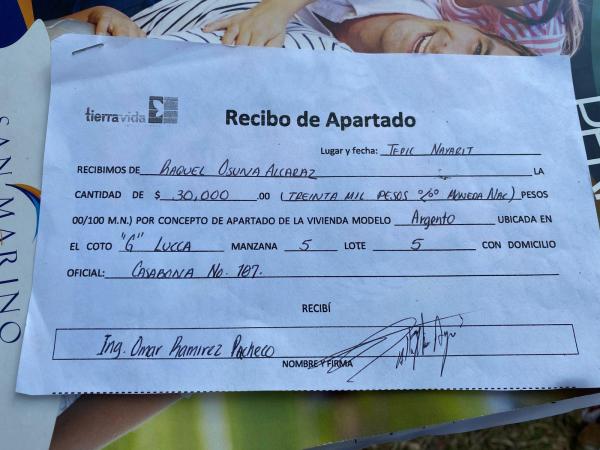 tierravida
Recibo de Apartado
Lugar y fecha: TEPIC NAYARIT
RECIBIMOS DE RAQUEL OSUNA ALCARAZ LA
CANTIDAD DE $ 30,000 .00 (TREINTA MIL PESOS %0 MONEDA NAC) PESOS
00/100 M.N.) POR CONCEPTO DE APARTADO DE LA VIVIENDA MODELO Argento UBICADA EN
EL COTO "G" LUCCA MANZANA 5 LOTE 5 CON DOMICILIO
OFICIAL: CASABONA No. 187.
RECIBÍ
Ing. Omar Ramirez Pacheco
NOMBRE Y FIRMA
SAN MARINO